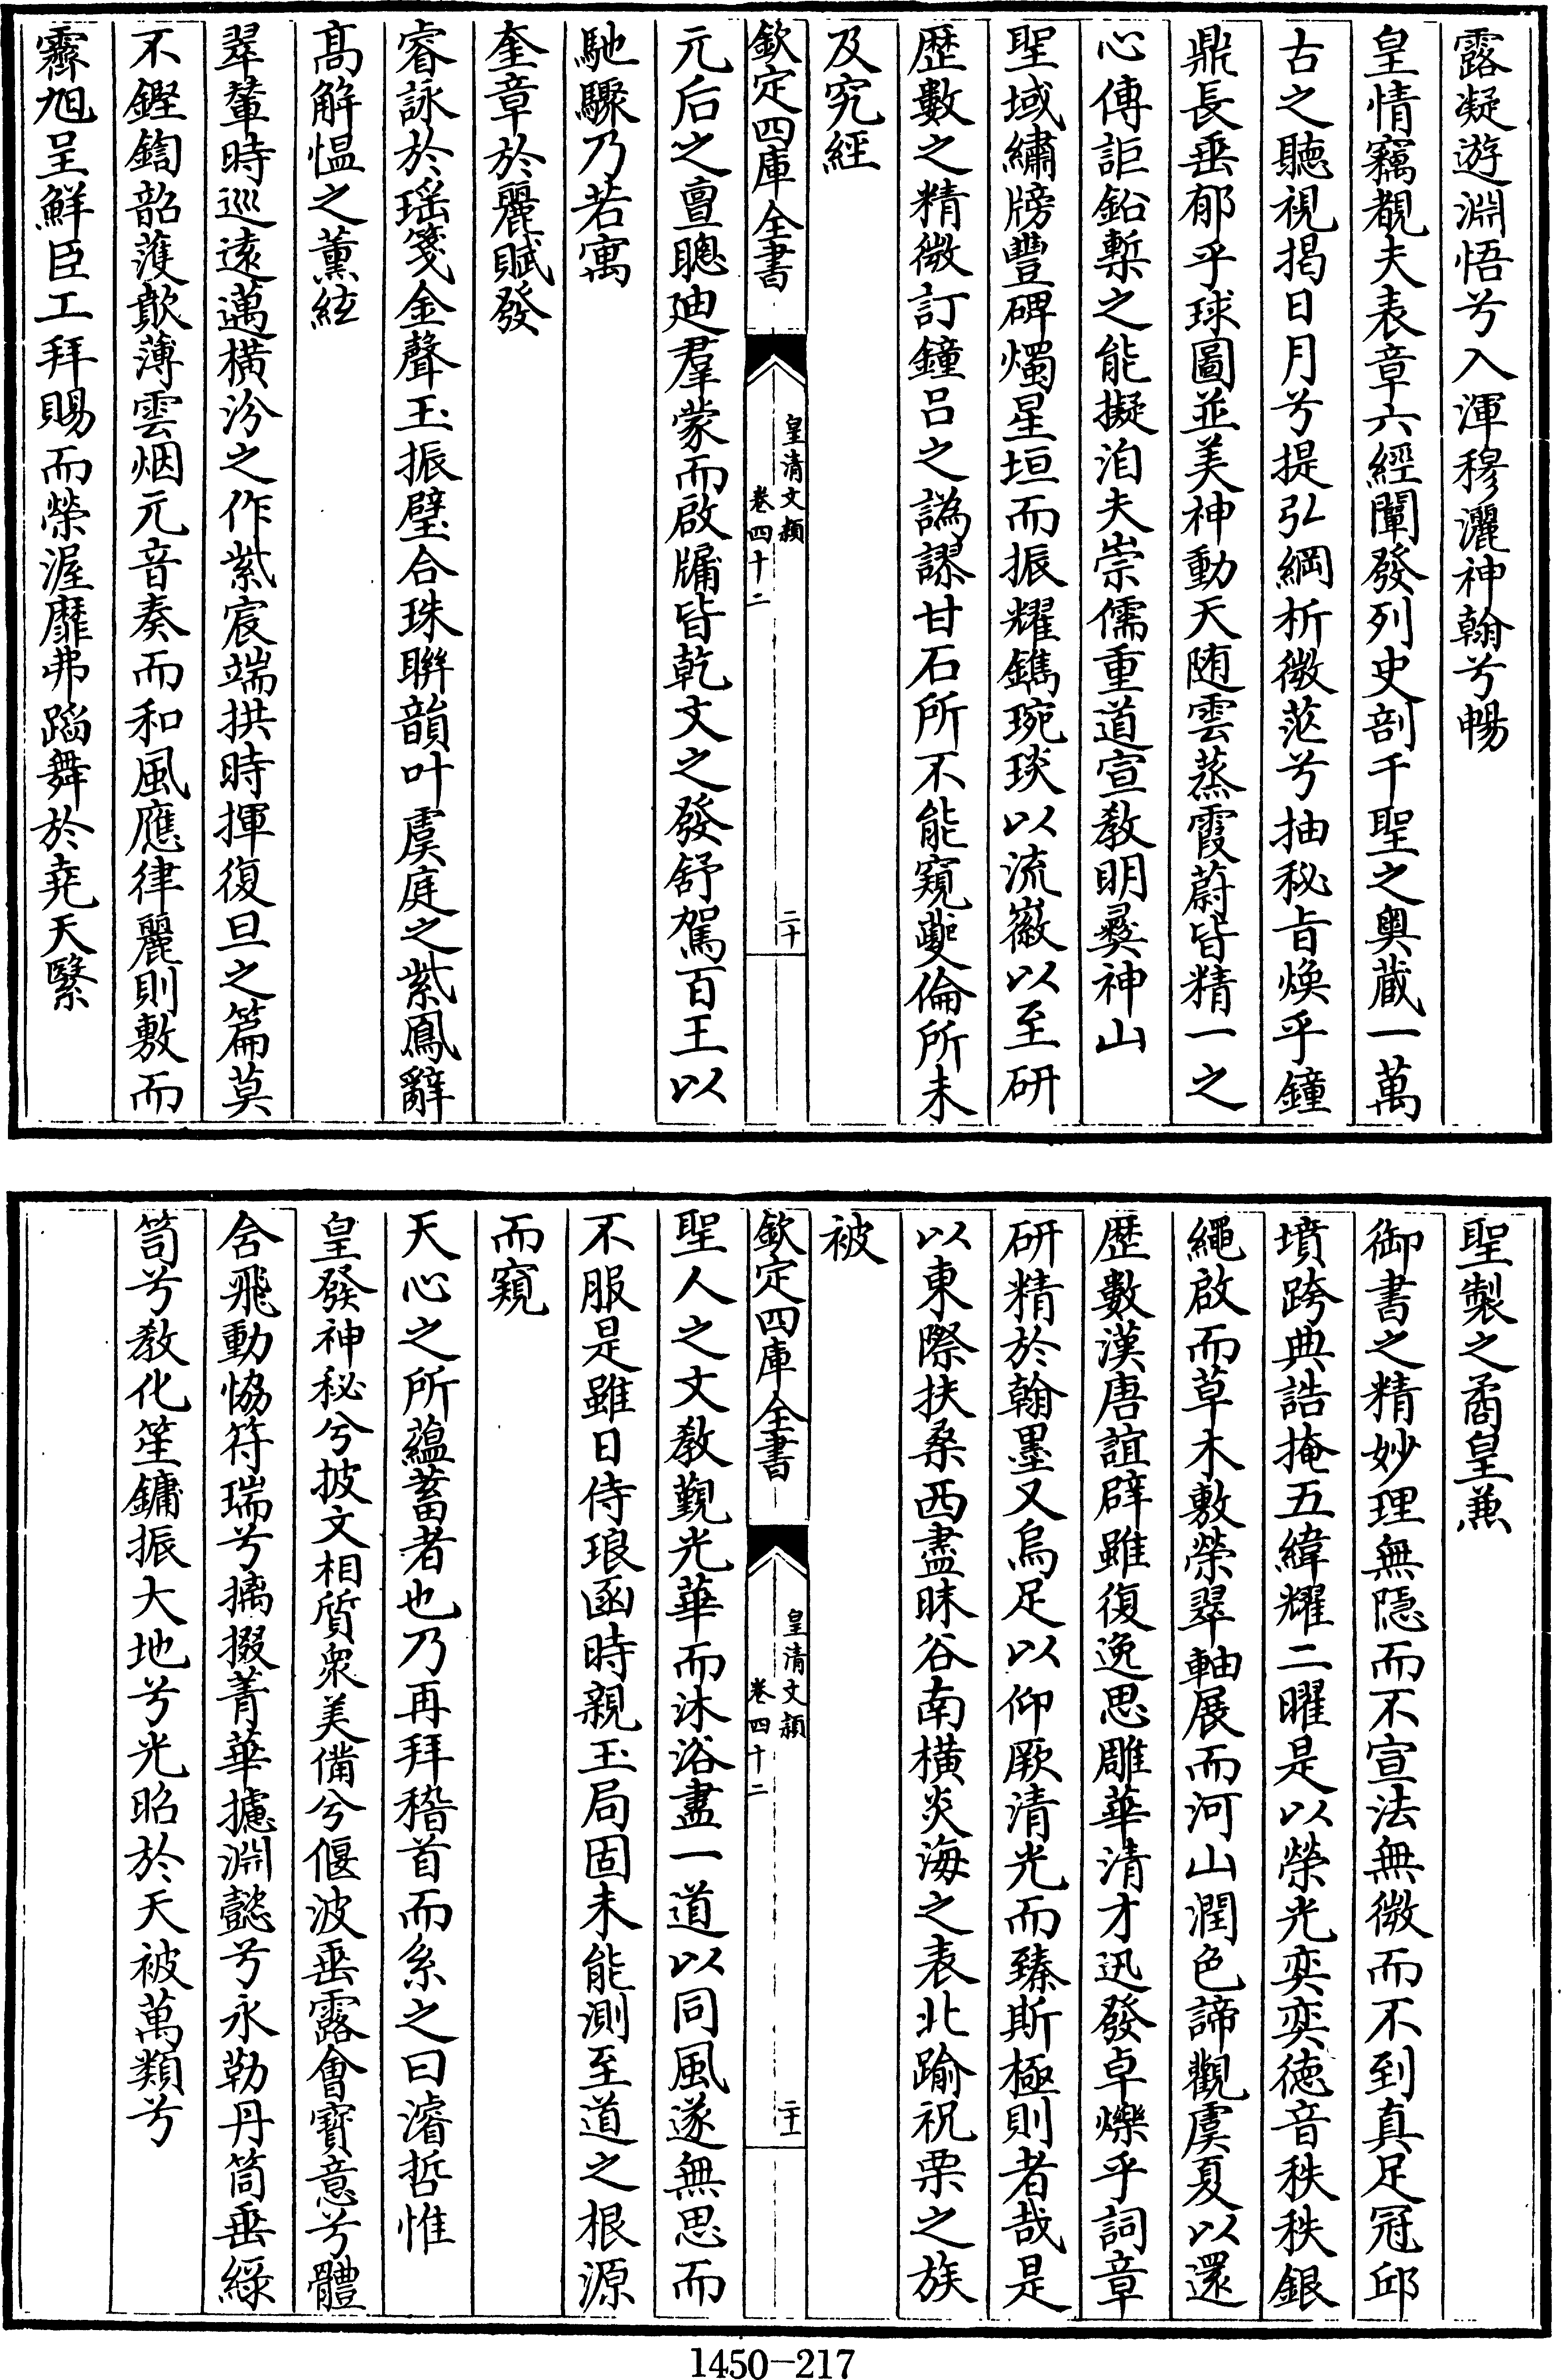 露凝遊淵悟兮入渾穆灑神翰兮暢
皇情竊覩夫表章六經闡發列史剖千聖之奥藏一萬
古之聽視揭日月兮提弘綱析微茫兮抽秘㫖煥乎鐘
鼎長垂郁乎球圖並美神動天随雲蒸霞蔚皆精一之
心傳詎鉛槧之能擬洎夫崇儒重道宣教明彛神山
聖域繡牓豐碑燭星垣而振耀鐫琬琰以流徽以至研
歴數之精微訂鐘吕之譌謬甘石所不能窺夔倫所未
及究經
欽定四庫全書
皇清文頴
卷四十二
二十
元后之亶聰廸羣蒙而啟牖皆乾文之發舒駕百王以
馳驟乃若寓
奎章於麗賦發
睿詠於瑶箋金聲玉振璧合珠聯韻叶虞庭之紫鳳辭
髙解愠之薫絃
翠輦時巡逺邁橫汾之作紫宸端拱時揮復旦之篇莫
不鏗鍧韶濩歕薄雲烟元音奏而和風應律麗則敷而
霽旭呈鮮臣工拜賜而榮渥靡弗蹈舞於堯天繄
聖製之矞皇兼
御書之精妙理無隠而不宣法無微而不到真足冠邱
墳跨典誥掩五緯耀二曜是以榮光奕奕德音秩秩銀
繩啟而草木敷榮翠軸展而河山潤色諦觀虞夏以還
歴數漢唐誼辟雖復逸思雕華清才迅發卓爍乎詞章
研精於翰墨又烏足以仰厥清光而臻斯極則者哉是
以東際扶桑西盡昧谷南橫炎海之表北踰祝栗之族
被
欽定四庫全書
皇清文頴
卷四十二
二十一
聖人之文教觀光華而沐浴盡一道以同風遂無思而
不服是雖日侍琅函時親玉局固未能測至道之根源
而窺
天心之所藴蓄者也乃再拜稽首而系之曰濬哲惟
皇發神秘兮披文相質衆美備兮偃波垂露會寳意兮體
含飛動恊符瑞兮摛掇菁華攄淵懿兮永勒丹筒垂綵
笥兮教化笙鏞振大地兮光昭於天被萬類兮
1450-217